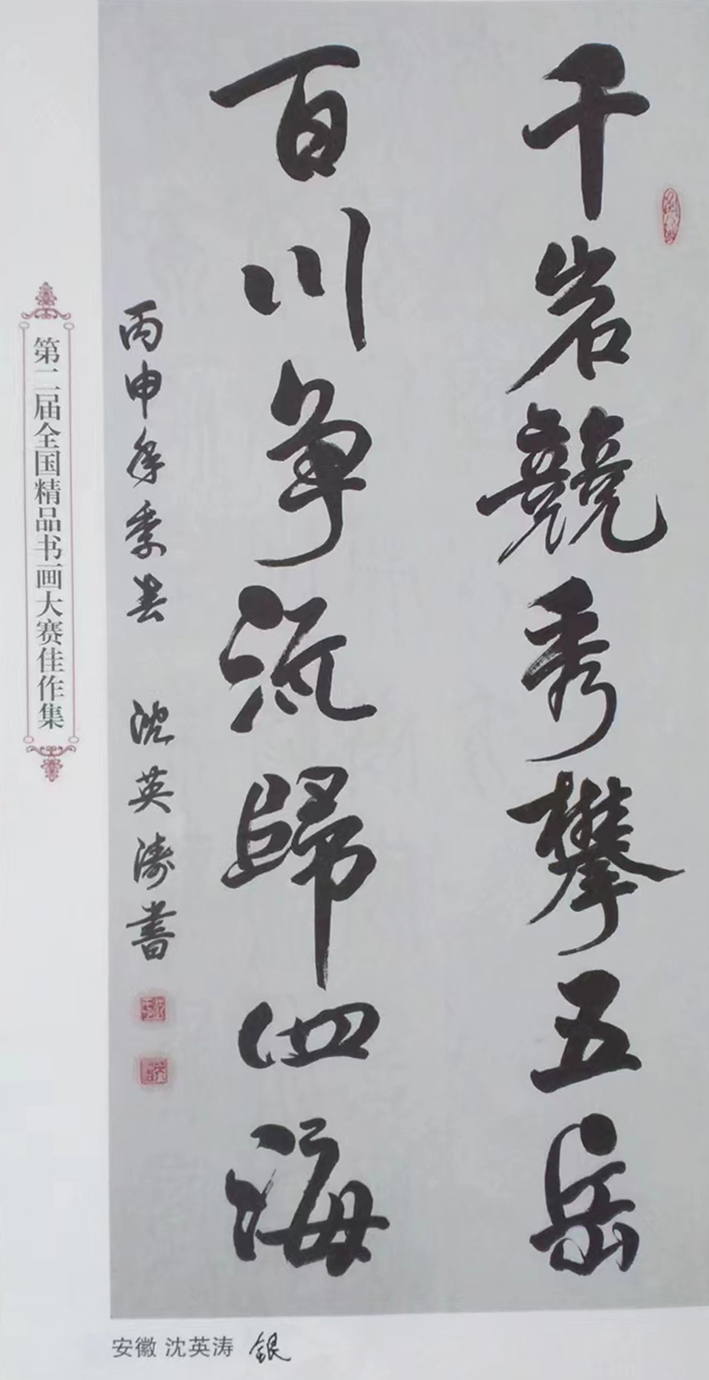 千岩競秀攀五岳
百川争流歸四海
丙申年季春 沈英涛書
第二届全国精品书画大赛佳作集
安徽 沈英涛 銀